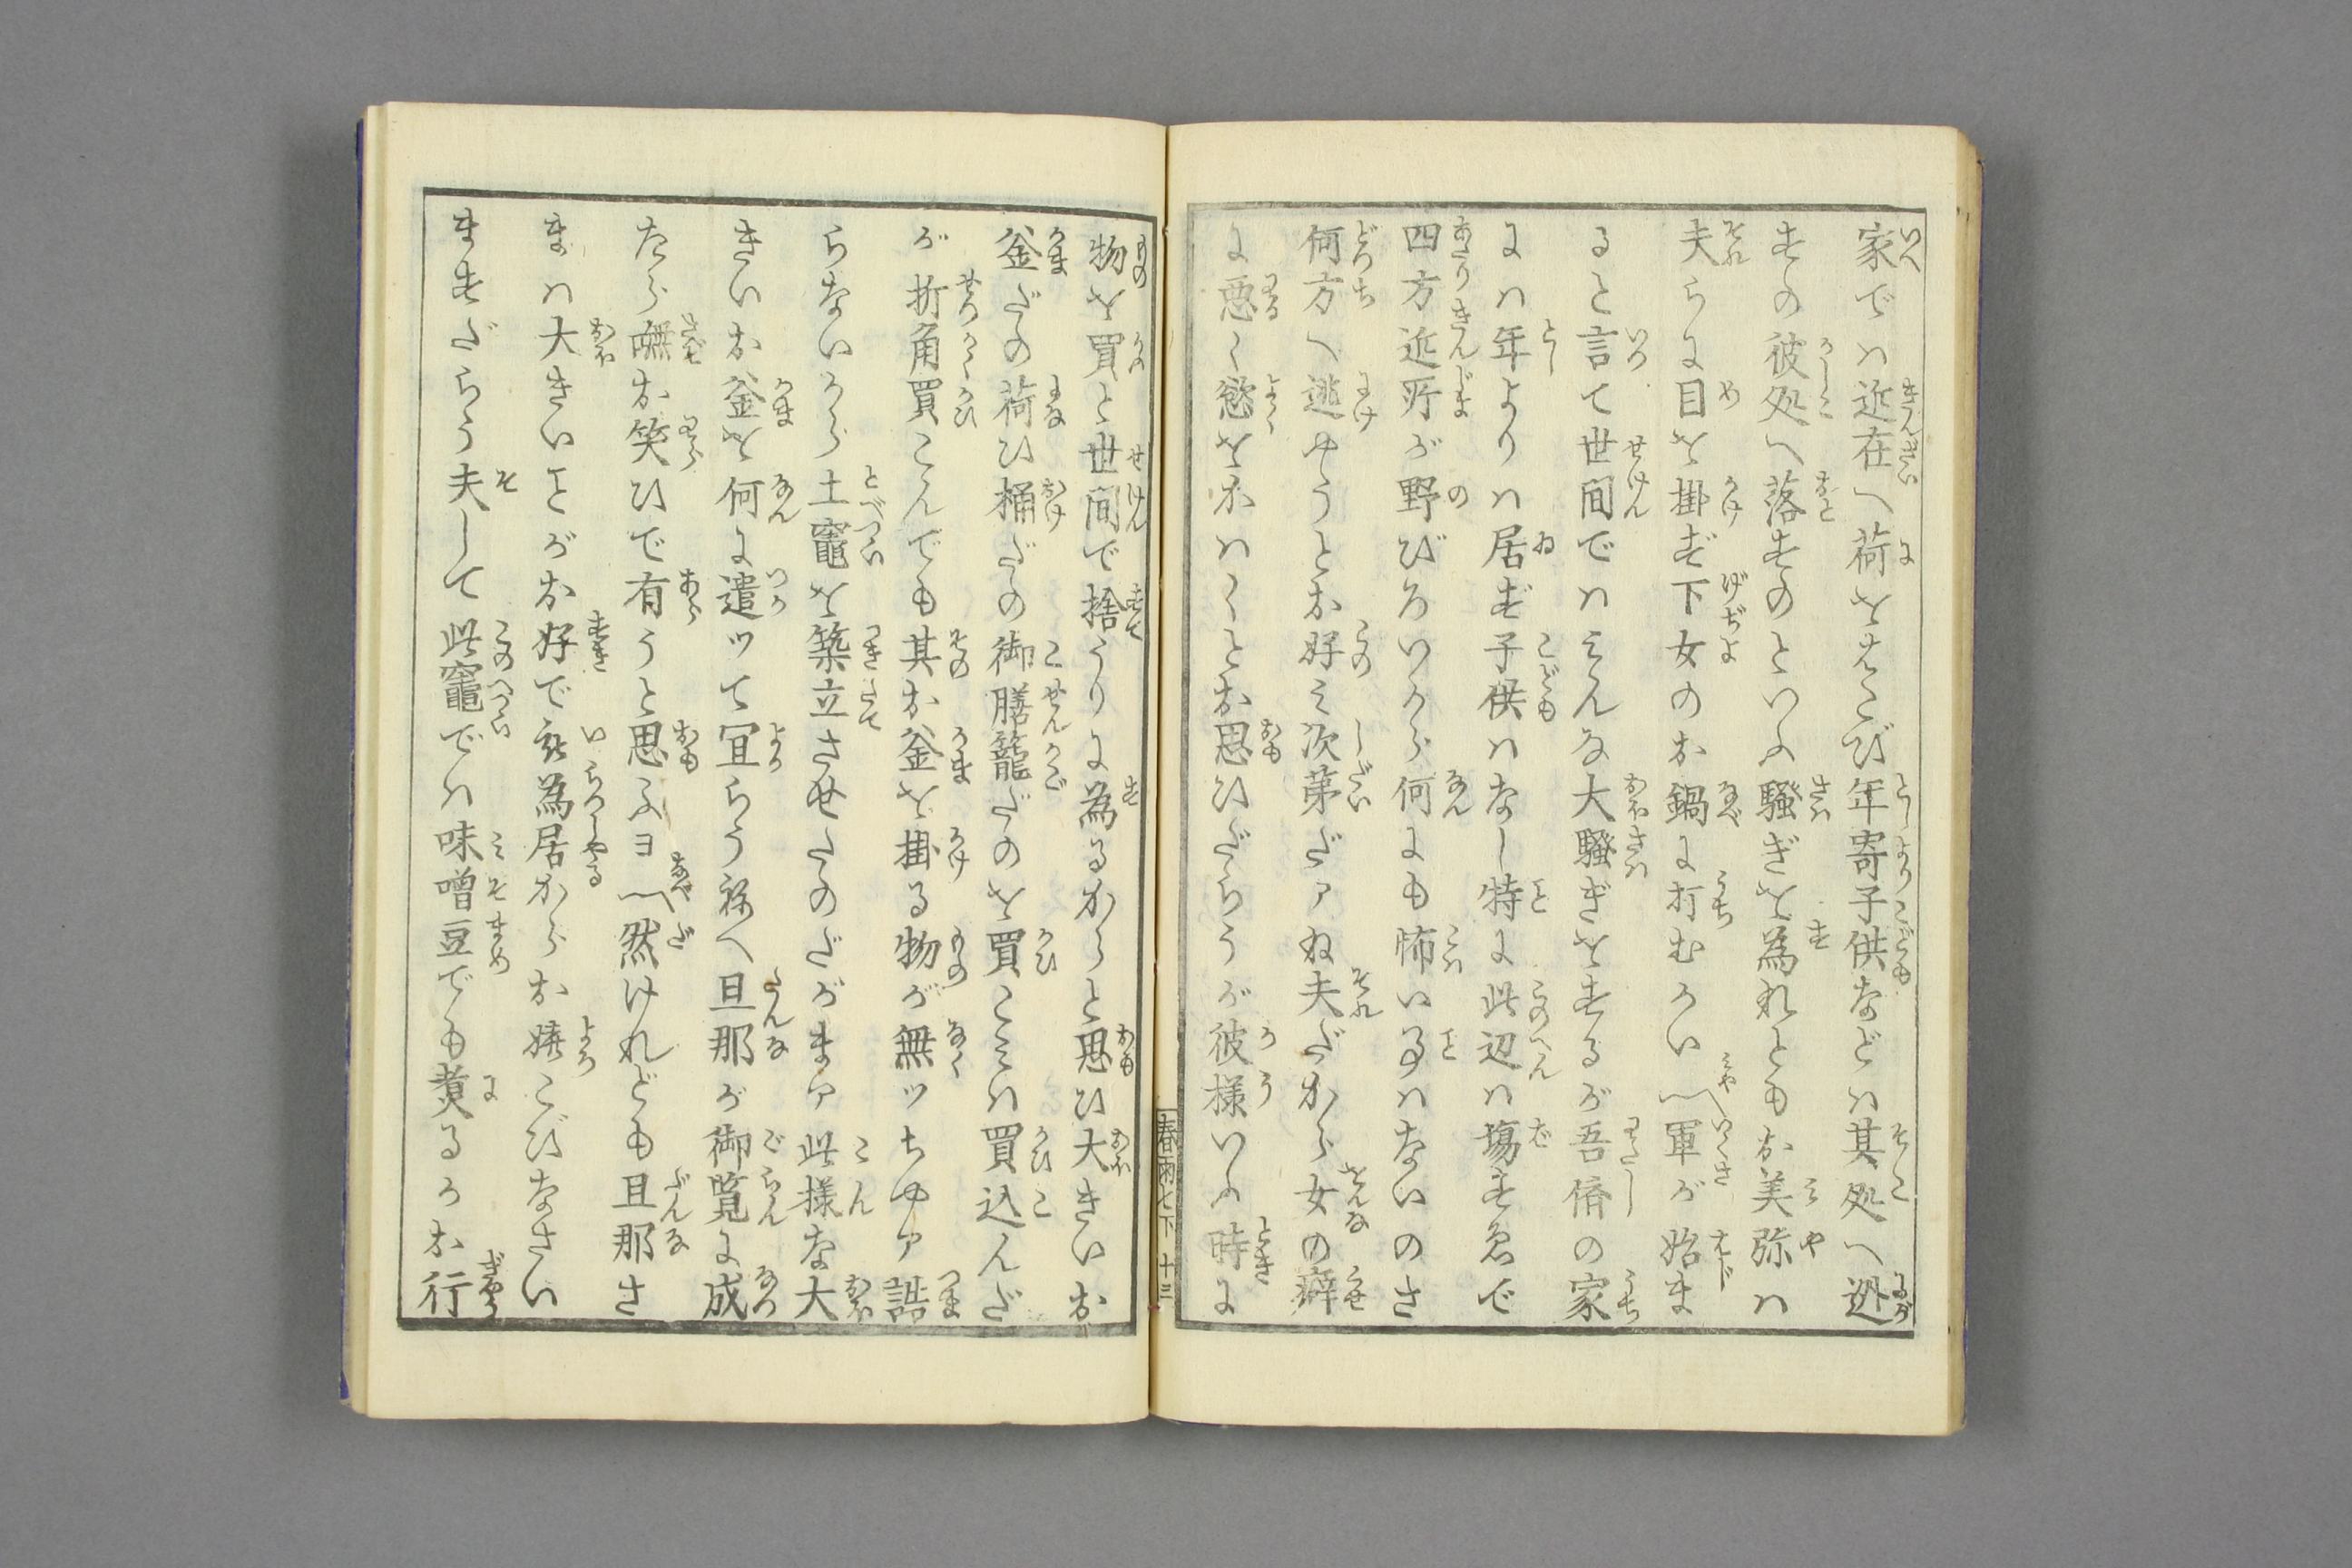 家では近在へ荷をはこび年寄子供などは其処へ迯
すの彼処へ落すのといふ騒ぎを為れどもお美弥は
夫らに目を掛ず下女のお鍋に打むかい みや〽軍が始ま
ると言て世間ではみんな大騒ぎをするが吾儕の家
には年よりは居ず子供はなし特に此辺は場すゑで
四方近所が野びろいから何にも怖い事はないのさ
何方へ逃やうとお好み次第だァね夫だから女の癖
に悪く慾をかはくとお思ひだらうが彼様いふ時に
物を買と世間で捨うりに為るからと思ひ大きいお
釜だの荷ひ桶だの御膳籠だのを買こみは買込んだ
が折角買こんでも其お釜を掛る物が無ッちやァ誥
らないから土竈を築立させたのだがまァ此様な大
きいお釜を何に遣ッて宜らう祢へ旦那が御覧に成
たら嘸お笑ひで有うと思ふヨ なべ〽然だけれども旦那さ
まは大きい事がお好で被為居からお嬉こびなさい
ますだらう夫して此竈では味噌豆でも煑るかお行
春雨七下 十三